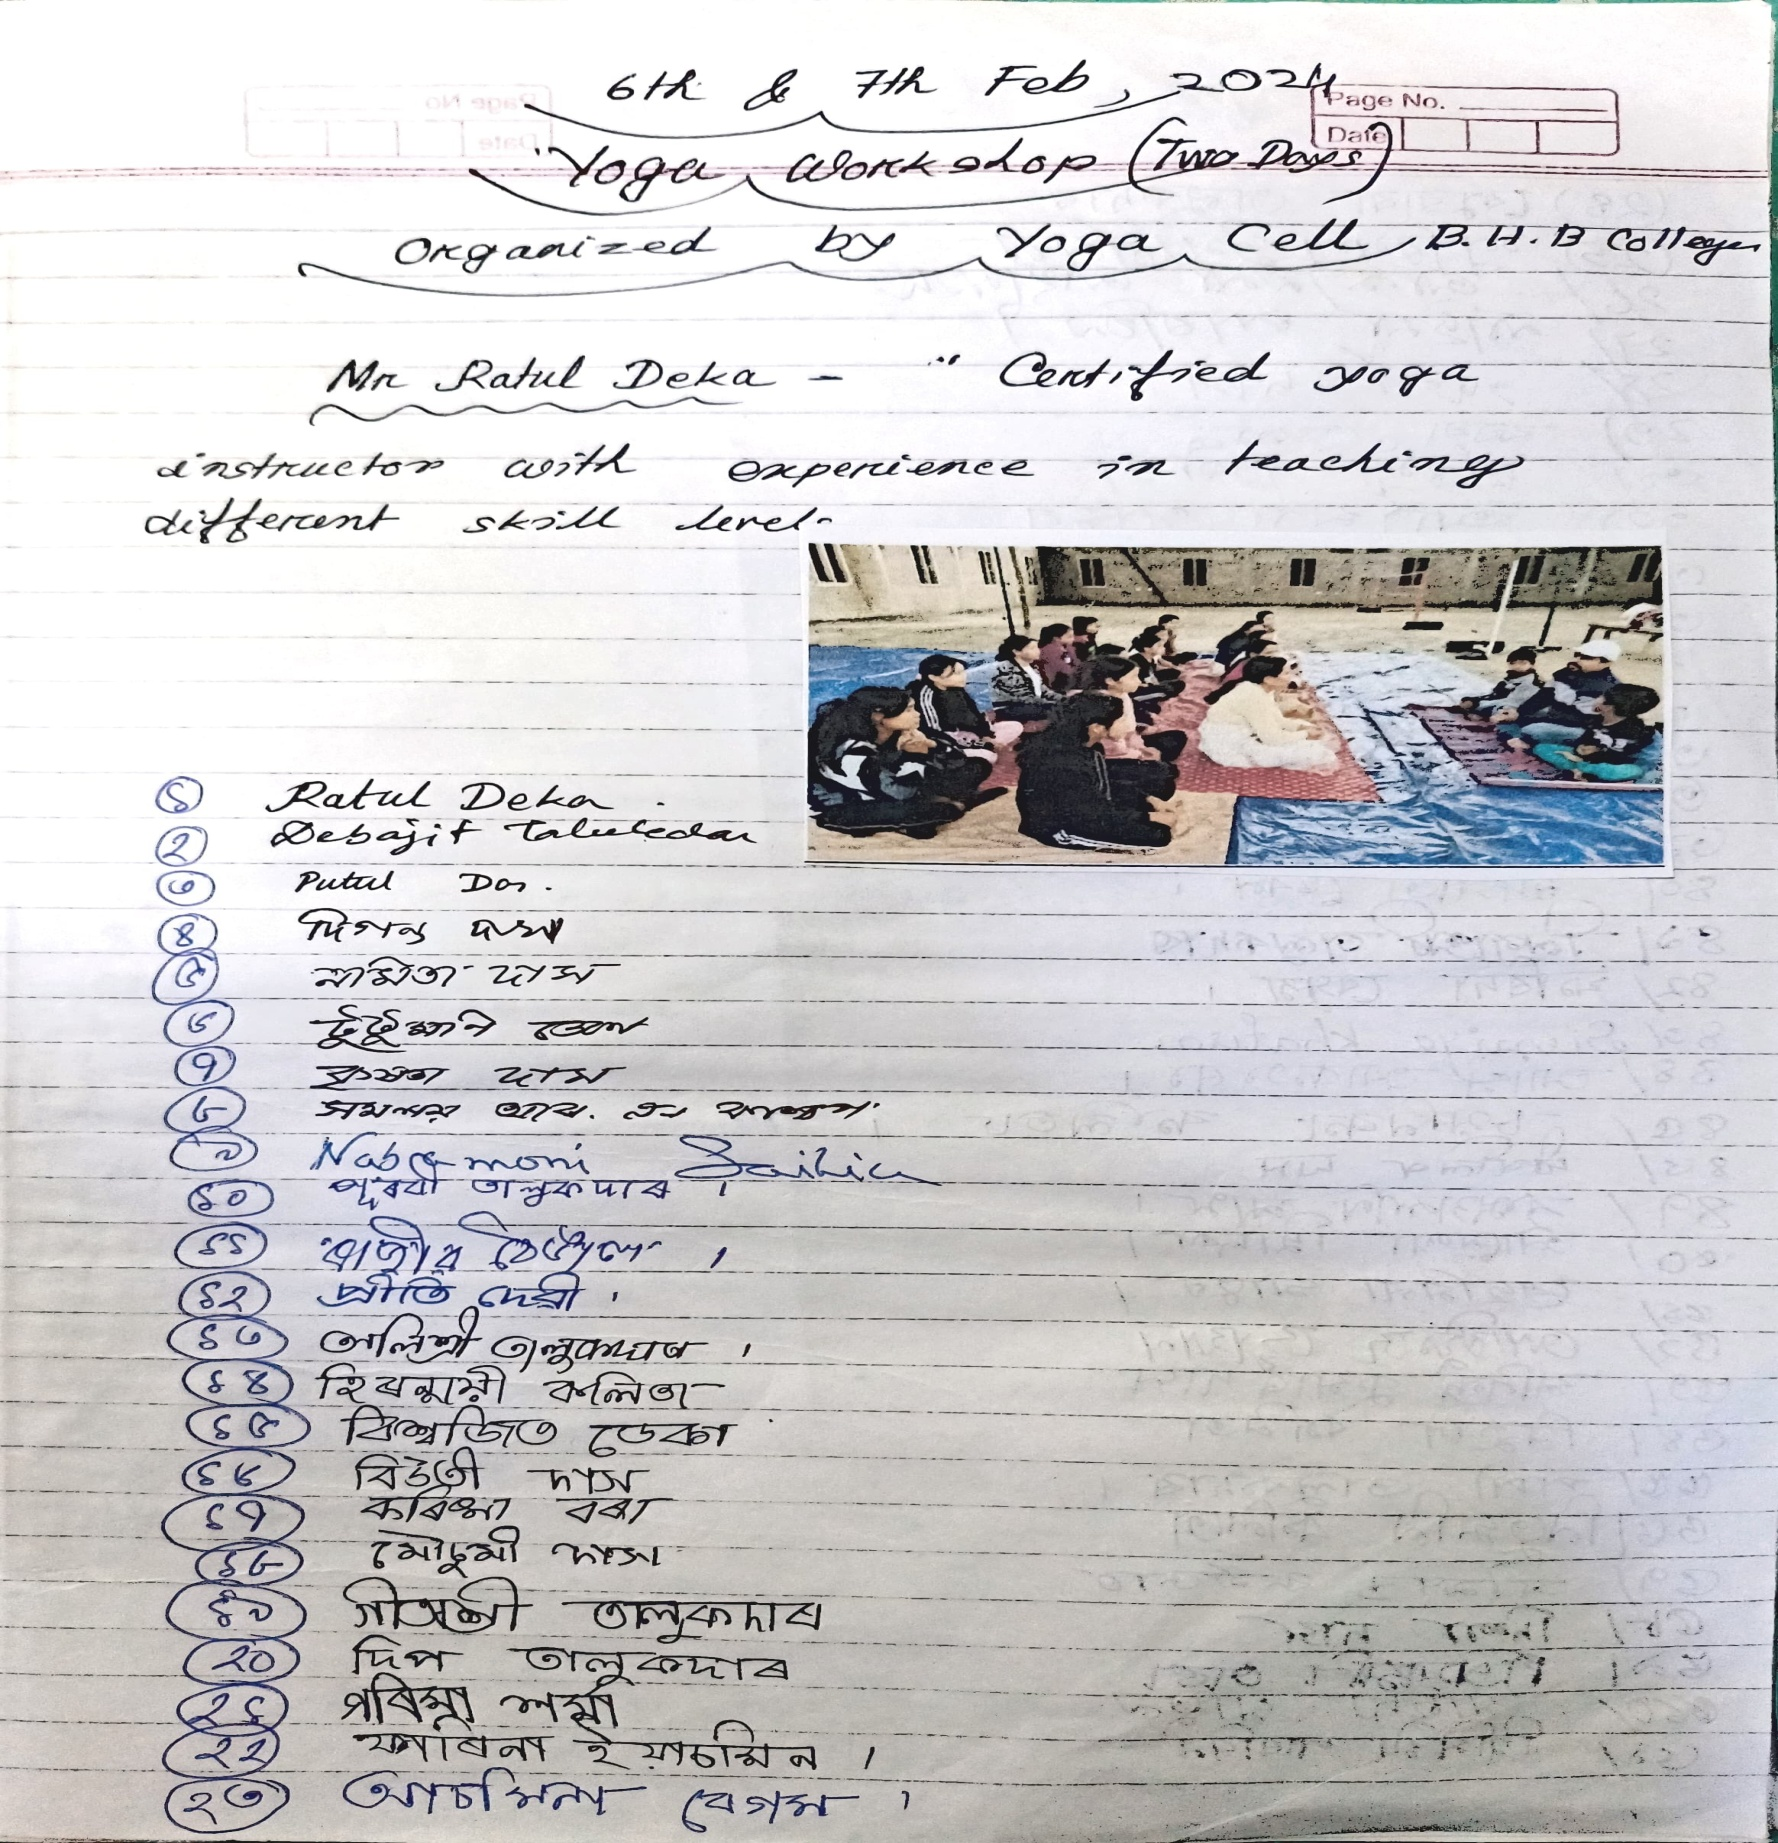 6th & 7th Feb, 2024
Page No.
Date
"Yoga Workshop (Two Days)
Organized by Yoga Cell, B.H.B College
Mr Ratul Deka - " Certified yoga
instructor with experience in teaching
different skill level.
১ Ratul Deka.
২ Debajit Talukdar
৩ Putul Das.
৪ দিগন্ত দাস
৫ নমিতা দাস
৬ টুটুমনি
৭ কৃষ্ণা দাস
৮
৯ Nabamoni Saikia
১০ পূৰবী তালুকদাৰ ।
১১
১২ প্ৰীতি দেৱী ।
১৩ অলিশ্ৰী তালুকদাৰ ।
১৪ হিৰন্ময়ী কলিতা
১৫ বিশ্বজিত ডেকা
১৬ বিউতী দাস
১৭ কৰিশ্মা বৰা
১৮ মৌচুমী দাস
১৯ গীতাশ্ৰী তালুকদাৰ
২০ দিপ তালুকদাৰ
২১ গৰিমা শৰ্মা
২২ ফাৰিনা ইয়াচমিন ।
২৩ আচমিনা বেগম ।